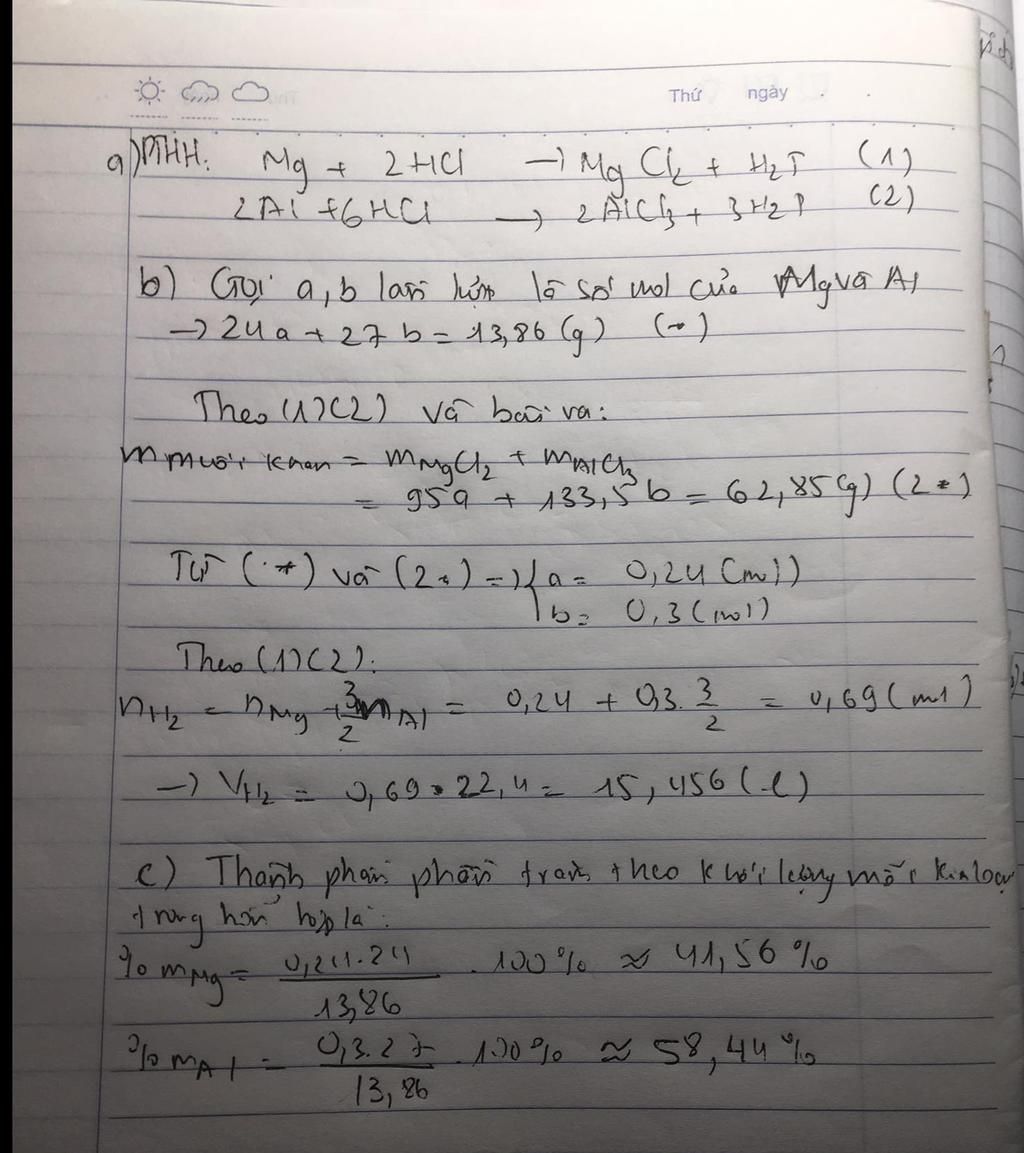 Thứ ngày
a) PTHH: Mg + 2HCl → MgCl₂ + H₂↑ (1)
2Al + 6HCl → 2AlCl₃ + 3H₂↑ (2)
b) Gọi a, b lần lượt là số mol của Mg và Al
→ 24a + 27b = 13,86 (g) (*)
Theo (1)(2) và bài ra:
m muối khan = mMgCl₂ + mAlCl₃
= 95a + 133,5b = 62,85(g) (2*)
Từ (*) và (2*) => { a = 0,24 (mol)
b = 0,3 (mol)
Theo (1)(2):
nH₂ = nMg + 3/2 nAl = 0,24 + 0,3. 3/2 = 0,69 (mol)
→ VH₂ = 0,69 . 22,4 = 15,456 (l)
c) Thành phần phần trăm theo khối lượng mỗi kim loại
trong hỗn hợp là:
%mMg = 0,24.24/13,86 . 100% ≈ 41,56%
%mAl = 0,3.27/13,86 . 100% ≈ 58,44%